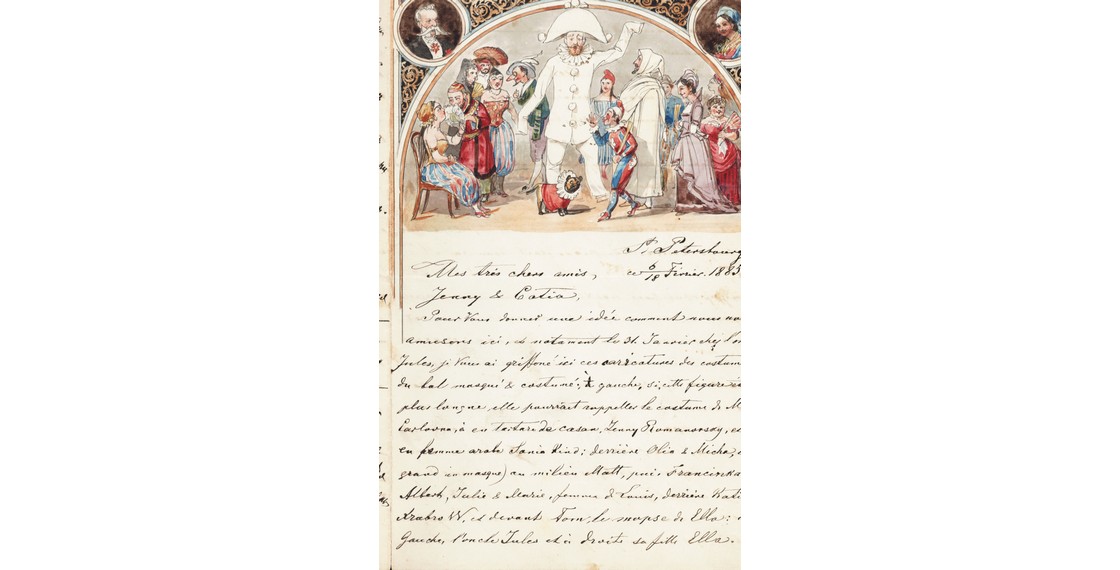 St Petersbourg
ce 6/18 Février 1885
Mes très chers amis,
Jenny & Catia,
Pour Vous donner une idée comment nous no
amusons ici, & notament le 31 Janvier chez l'on
Jules, je Vous ai griffoné ici ces caricatures des costum
du bal masqué & costumé; à gauche, si cette figure
plus longue, elle pourrait rappeller le costume de M
Carlovna, à en tartare de casan, Jenny Romanovsky, e
en femme arabe Sania Hind; derrière Olia & Micha,
grand en masque) au milieu Matt, puis Franciska
Albert, Julie & Marie, femme de Louis, derrière Kati
Arabro W. et devant Tom, le mopse de Ella:
Gauche, l'oncle Jules et à droite sa fille Ella.